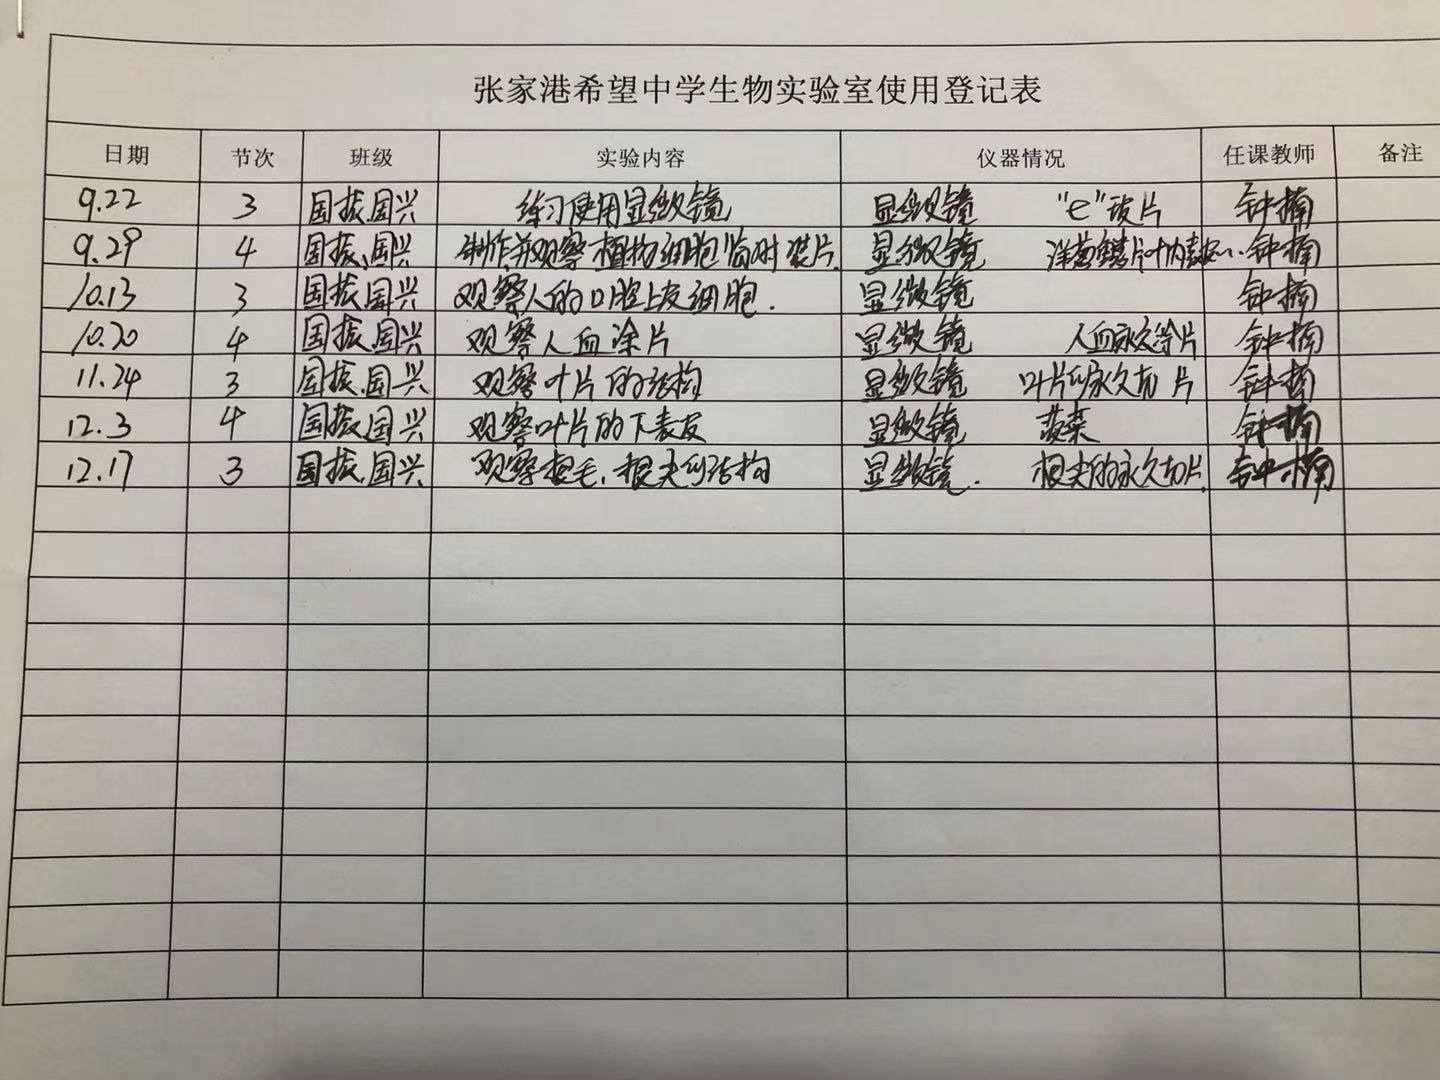 张家港希望中学生物实验室使用登记表
日期 节次 班级 实验内容 仪器情况 任课教师 备注
9.22 3 国振.国兴 练习使用显微镜 显微镜 "e"玻片 钟楠
9.29 4 国振.国兴 制作并观察植物细胞临时装片. 显微镜 洋葱鳞片叶内表皮… 钟楠
10.13 3 国振.国兴 观察人的口腔上皮细胞. 显微镜 钟楠
10.20 4 国振.国兴 观察人血涂片 显微镜 人血永久涂片 钟楠
11.24 3 国振.国兴 观察叶片的结构 显微镜 叶片的永久切片 钟楠
12.3 4 国振.国兴 观察叶片的下表皮 显微镜 菠菜 钟楠
12.17 3 国振.国兴 观察根毛.根尖的结构 显微镜. 根尖的永久切片. 钟楠